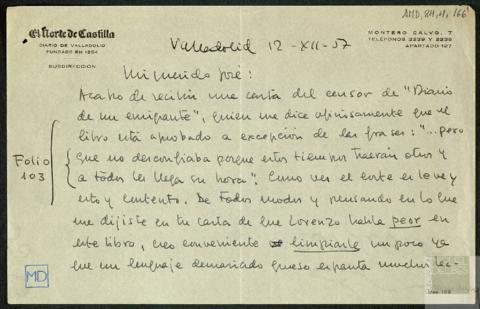 AMD, 84, 4, 166
El Norte de Castilla
DIARIO DE VALLADOLID
FUNDADO EN 1854
SUBDIRECCIÓN
MONTERO CALVO, 7
TELÉFONOS 2239 y 2339
APARTADO 127
Valladolid 12-XII-57
Mi querido José:
Acabo de recibir una carta del censor de "Diario
de un emigrante", quien me dice oficiosamente que el
libro está aprobado a excepción de las frases: "...pero
Folio
103
que no desconfiaba porque estos tiempos traerán otros y
a todos les llega su hora". Como ves el corte es leve y
estoy contento. De todos modos y pensando en lo que
me dijiste en tu carta de que Lorenzo habla peor en
este libro, creo conveniente limpiarle un poco ya
que un lenguaje demasiado grueso espanta muchos lec-
MD